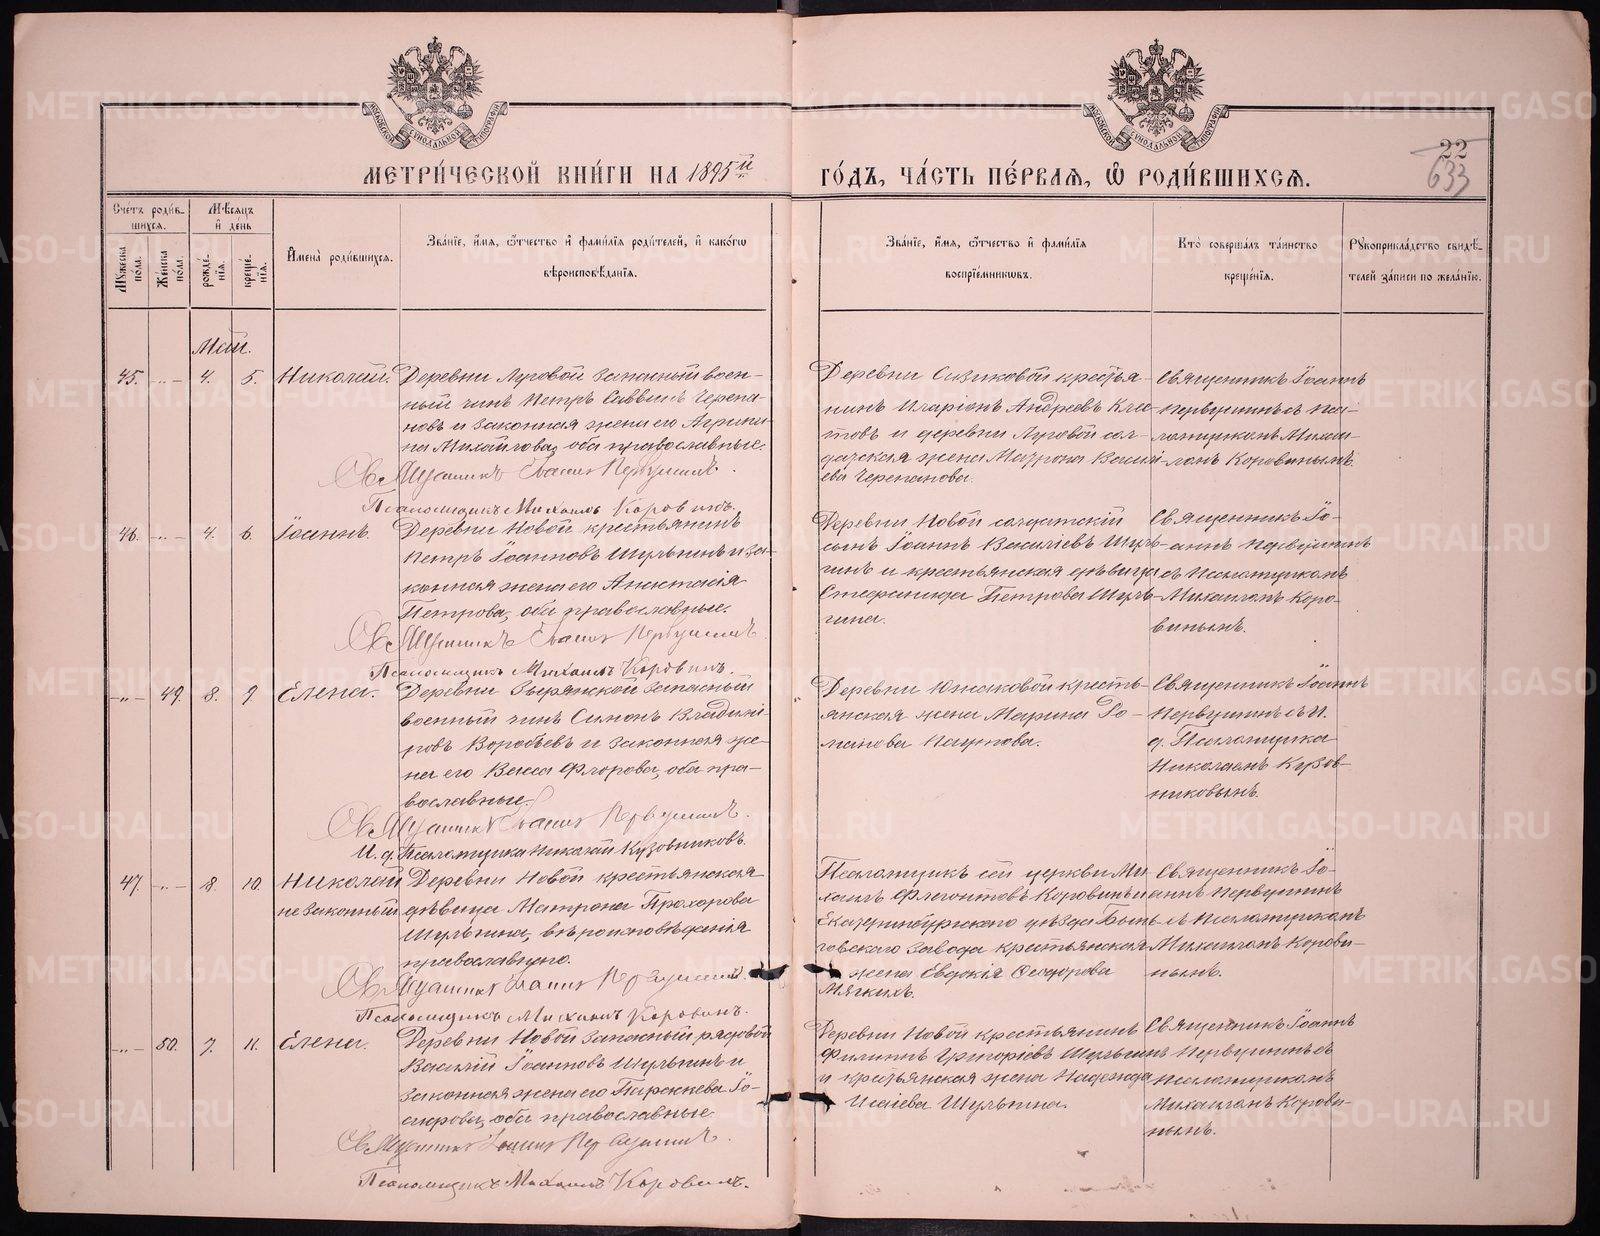 МОСКОВСКОЙ СѴНОДАЛЬНОЙ ТИПОГРАФІИ
МОСКОВСКОЙ СѴНОДАЛЬНОЙ ТИПОГРАФІИ
МЕТРИ́ЧЕСКОЙ КНИ́ГИ НА 1895й
ГО́ДЪ, ЧА́СТЬ ПЕ́РВАЯ, Ѽ РОДИ́ВШИХСЯ.
22
633
Сче́тъ роди́вшихся.
Мꙋ́жеска по́ла.
Же́нска по́ла.
Мѣ́сяцъ и҆ де́нь
рожде́нїя.
креще́нїя.
И҆мена̀ роди́вшихся.
Зва́нїе, и҆́мя, ѻ҆́тчество и҆ фами́лїя роди́телей, и҆ како́гѡ
вѣроисповѣ́данїя.
Зва́нїе, и҆́мя, ѻ҆́тчество и҆ фами́лїя
воспрїе́мниковъ.
Кто̀ соверша́лъ та́инство
креще́нїя.
Рꙋкоприкла́дство свидѣ́-
телей за́писи по жела́нїю.
Май.
45. -„- 4. 5. Николай.
Деревни Луговой запасный воен-
ный чинъ Петръ Саввинъ Черепа-
новъ и законная жена его Агрипи-
на Михайлова, оба православные.
Священникъ Іоаннъ Первушинъ.
Псаломщикъ Михаилъ Коровинъ.
Деревни Сизиковой крестья-
нинъ Иларіонъ Андреевъ
и деревни Луговой сол-
датская жена Матрона Васил-
ева Черепанова.
Священникъ Іоаннъ
Первушинъ съ Пса-
ломщикомъ Михаи-
ломъ Коровинымъ.
46. -„- 4. 6. Іоаннъ.
Деревни Новой крестьянинъ
Петръ Іоанновъ Шульгинъ и за-
конная жена его Анастасія
Петрова, оба православные.
Священникъ Іоаннъ Первушинъ.
Псаломщикъ Михаилъ Коровинъ.
Деревни Новой солдатскій
сынъ Іоаннъ Василіевъ Шуль-
гинъ и крестьянская дѣвица
Стефанида Петрова Шуль-
гина.
Священникъ Іо-
аннъ Первушинъ
съ Псаломщикомъ
Михаиломъ Коро-
винымъ.
-„- 49. 8. 9. Елена.
Деревни Зырянской запасный
военный чинъ Симонъ Владимі-
ровъ Воробьевъ и законная же-
на его Васса Флорова, оба пра-
вославные.
Священникъ Іоаннъ Первушинъ.
И. д. Псаломщика Николай Кузовниковъ.
Деревни Южаковой кресть-
янская жена Марина Ро-
манова
Священникъ Іоаннъ
Первушинъ съ И.
д. Псаломщика
Николаемъ Кузов-
никовымъ.
47. -„- 8. 10. Николай
незаконный
Деревни Новой крестьянская
дѣвица Матрона Прохорова
Шульгина, вѣроисповѣданія
православнаго.
Священникъ Іоаннъ Первушинъ.
Псаломщикъ Михаилъ Коровинъ.
Псаломщикъ сей церкви Ми-
хаилъ Флегонтовъ Коровинъ и
Екатеринбургскаго уѣзда Бынь-
говскаго завода крестьянская
жена Евдокія Ѳеодорова
Мягкихъ.
Священникъ Іо-
аннъ Первушинъ
съ Псаломщикомъ
Михаиломъ Корови-
нымъ.
-„- 50. 7. 11. Елена.
Деревни Новой запасный рядовой
Василій Іоанновъ Шульгинъ и
законная жена его Параскева Іо-
сифова, оба православные
Священникъ Іоаннъ Первушинъ.
Псаломщикъ Михаилъ Коровинъ.
Деревни Новой крестьянинъ
Филиппъ Григоріевъ Шульгинъ
и крестьянская жена Надежда
Исаіева Шульгина.
Священникъ Іоаннъ
Первушинъ съ
псаломщикомъ
Михаиломъ Корови-
нымъ.
METRIKI.GASO-URAL.RU